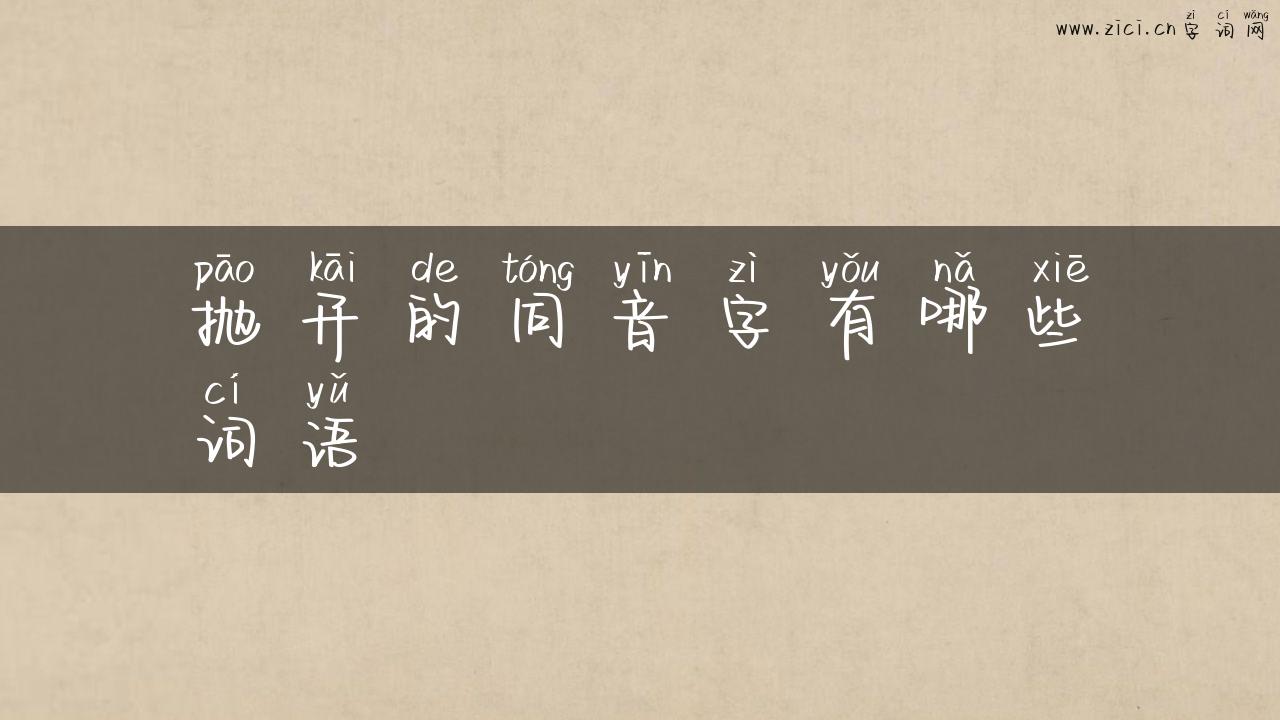 zì cí wǎng
www.zici.cn 字 词 网
pāo kāi de tóng yīn zì yǒu nǎ xiē
抛 开 的 同 音 字 有 哪 些
cí yǔ
词 语